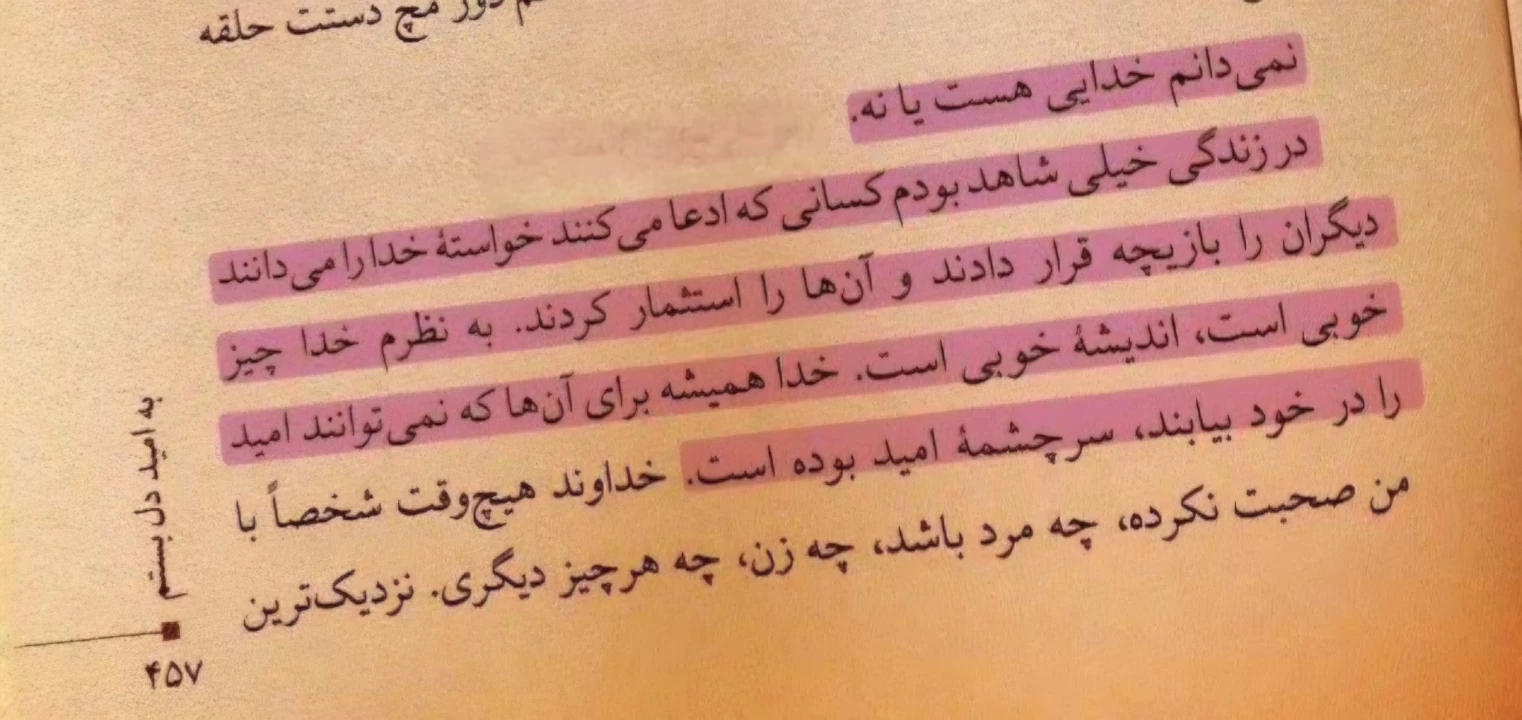 دور مچ دستت حلقه
نمی‌دانم خدایی هست یا نه.
در زندگی خیلی شاهد بودم کسانی که ادعا می‌کنند خواستهٔ خدا را می‌دانند
دیگران را بازیچه قرار دادند و آن‌ها را استثمار کردند. به نظرم خدا چیز
خوبی است، اندیشهٔ خوبی است. خدا همیشه برای آن‌ها که نمی‌توانند امید
را در خود بیابند، سرچشمهٔ امید بوده است. خداوند هیچ‌وقت شخصاً با
من صحبت نکرده، چه مرد باشد، چه زن، چه هرچیز دیگری. نزدیک‌ترین
به امید دل بستم
۴۵۷